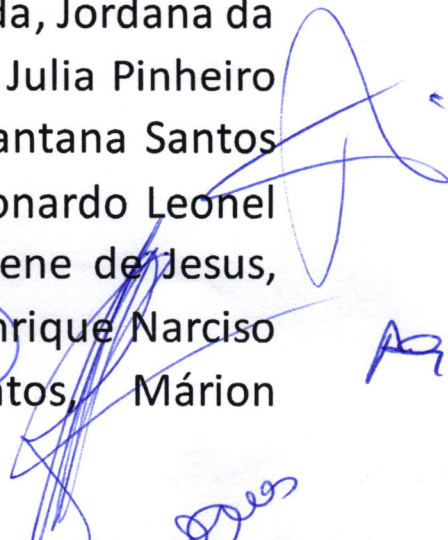 da, Jordana da
Julia Pinheiro
antana Santos
onardo Leonel
ene de Jesus,
nrique Narciso
ntos, Márion